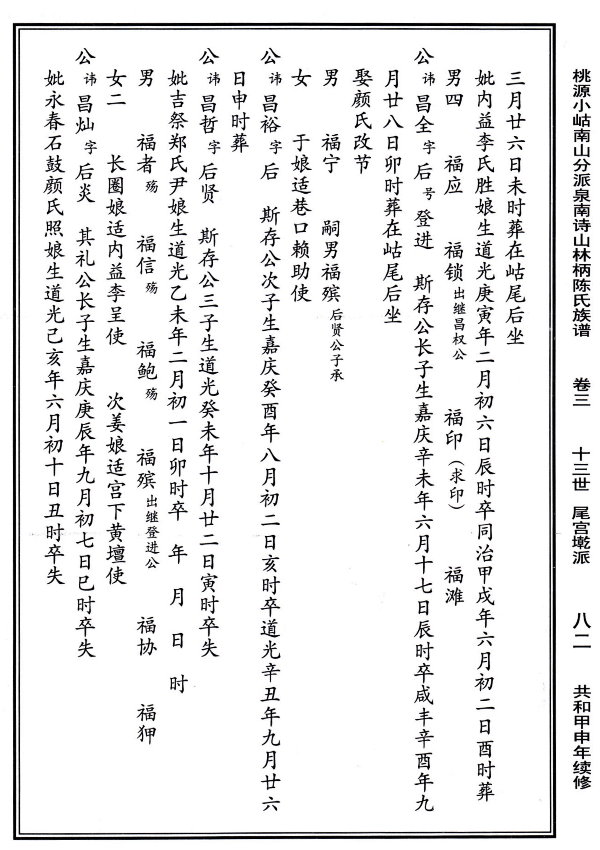 桃源小岵南山分派泉南诗山林柄陈氏族谱 卷三 十三世 尾宫墘派 八二 共和甲申年续修
三月廿六日未时葬在岵尾后坐
妣内益李氏胜娘生道光庚寅年二月初六日辰时卒同治甲戌年六月初二日酉时葬
男四 福应 福锁 出继昌权公 福印（求印） 福滩
公讳昌全字后号登进 斯存公长子生嘉庆辛未年六月十七日辰时卒咸丰辛酉年九
月廿八日卯时葬在岵尾后坐
娶颜氏改节
男 福宁 嗣男福殡 后贤公子承
女 于娘适巷口赖助使
公讳昌裕字后 斯存公次子生嘉庆癸酉年八月初二日亥时卒道光辛丑年九月廿六
日申时葬
公讳昌哲字后贤 斯存公三子生道光癸未年十月廿二日寅时卒失
妣吉祭郑氏尹娘生道光乙未年二月初一日卯时卒 年 月 日 时
男 福者 殇 福信 殇 福鲍 殇 福殡 出继登进公 福协 福狎
女二 长圈娘适内益李呈使 次姜娘适宫下黄壇使
公讳昌灿字后炎 其礼公长子生嘉庆庚辰年九月初七日巳时卒失
妣永春石鼓颜氏照娘生道光己亥年六月初十日丑时卒失